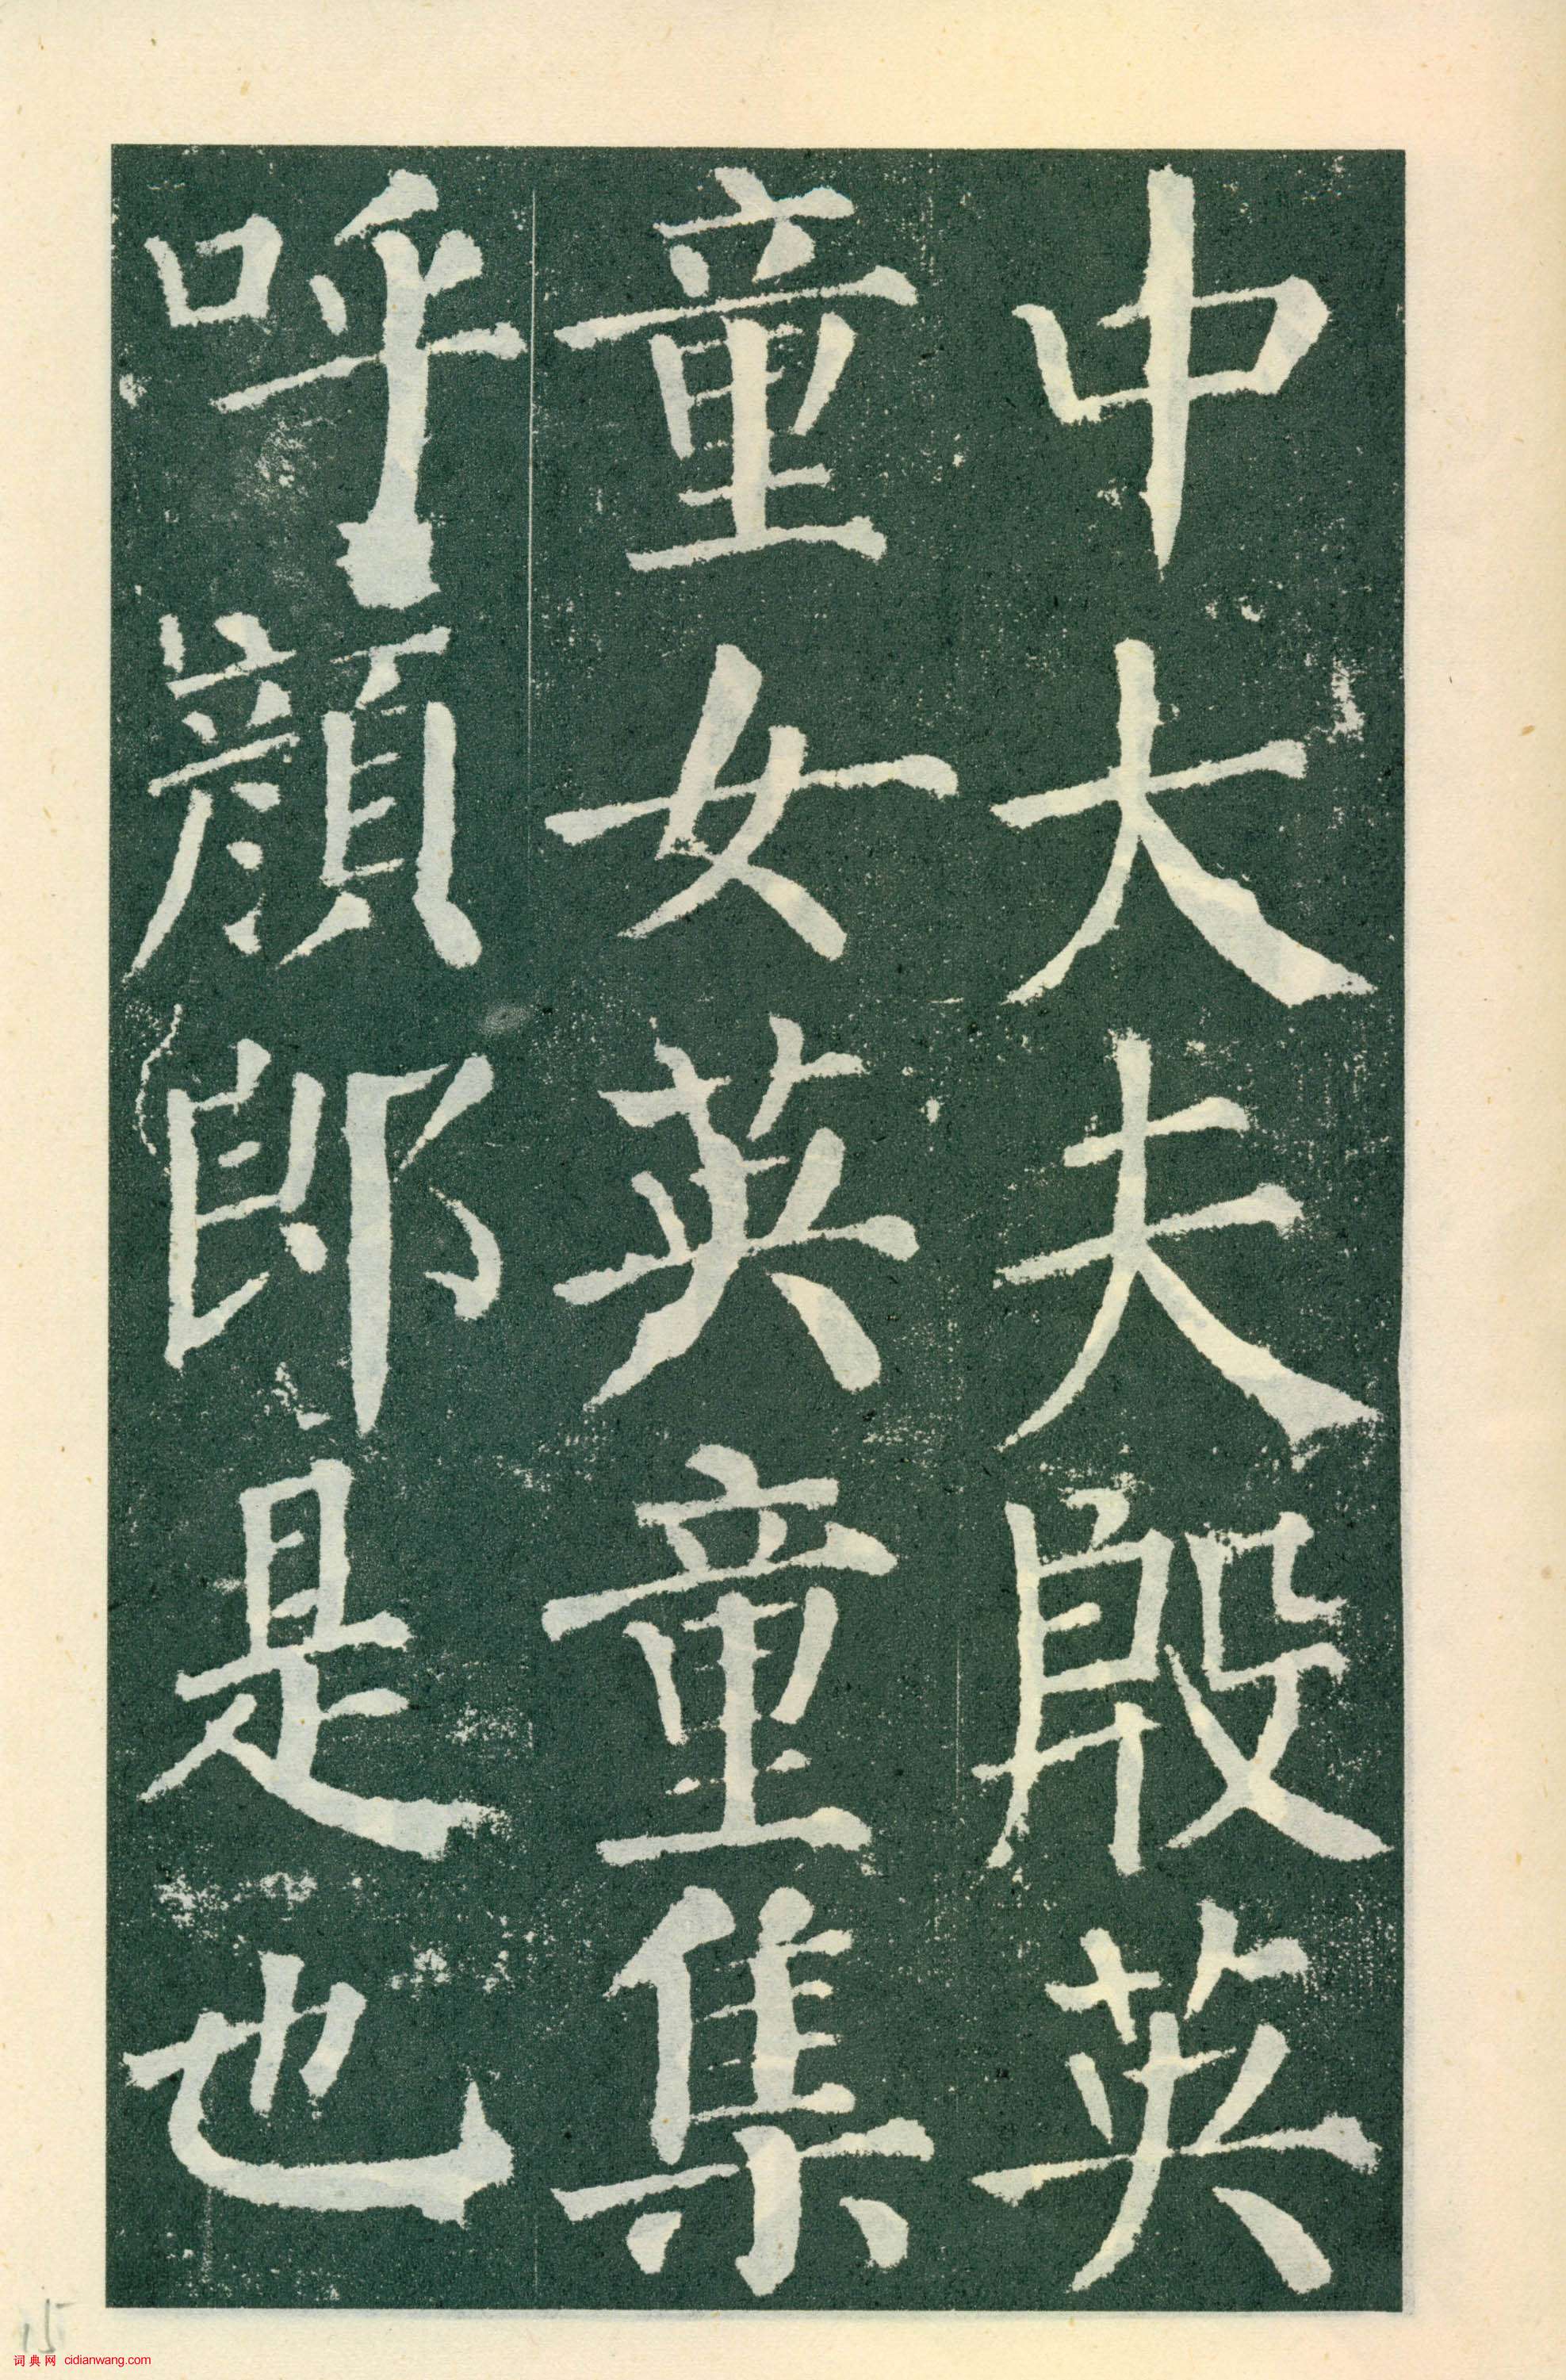 中大夫殷英
童女英童集
呼顏郎是也
15
词典网 cidianwang.com